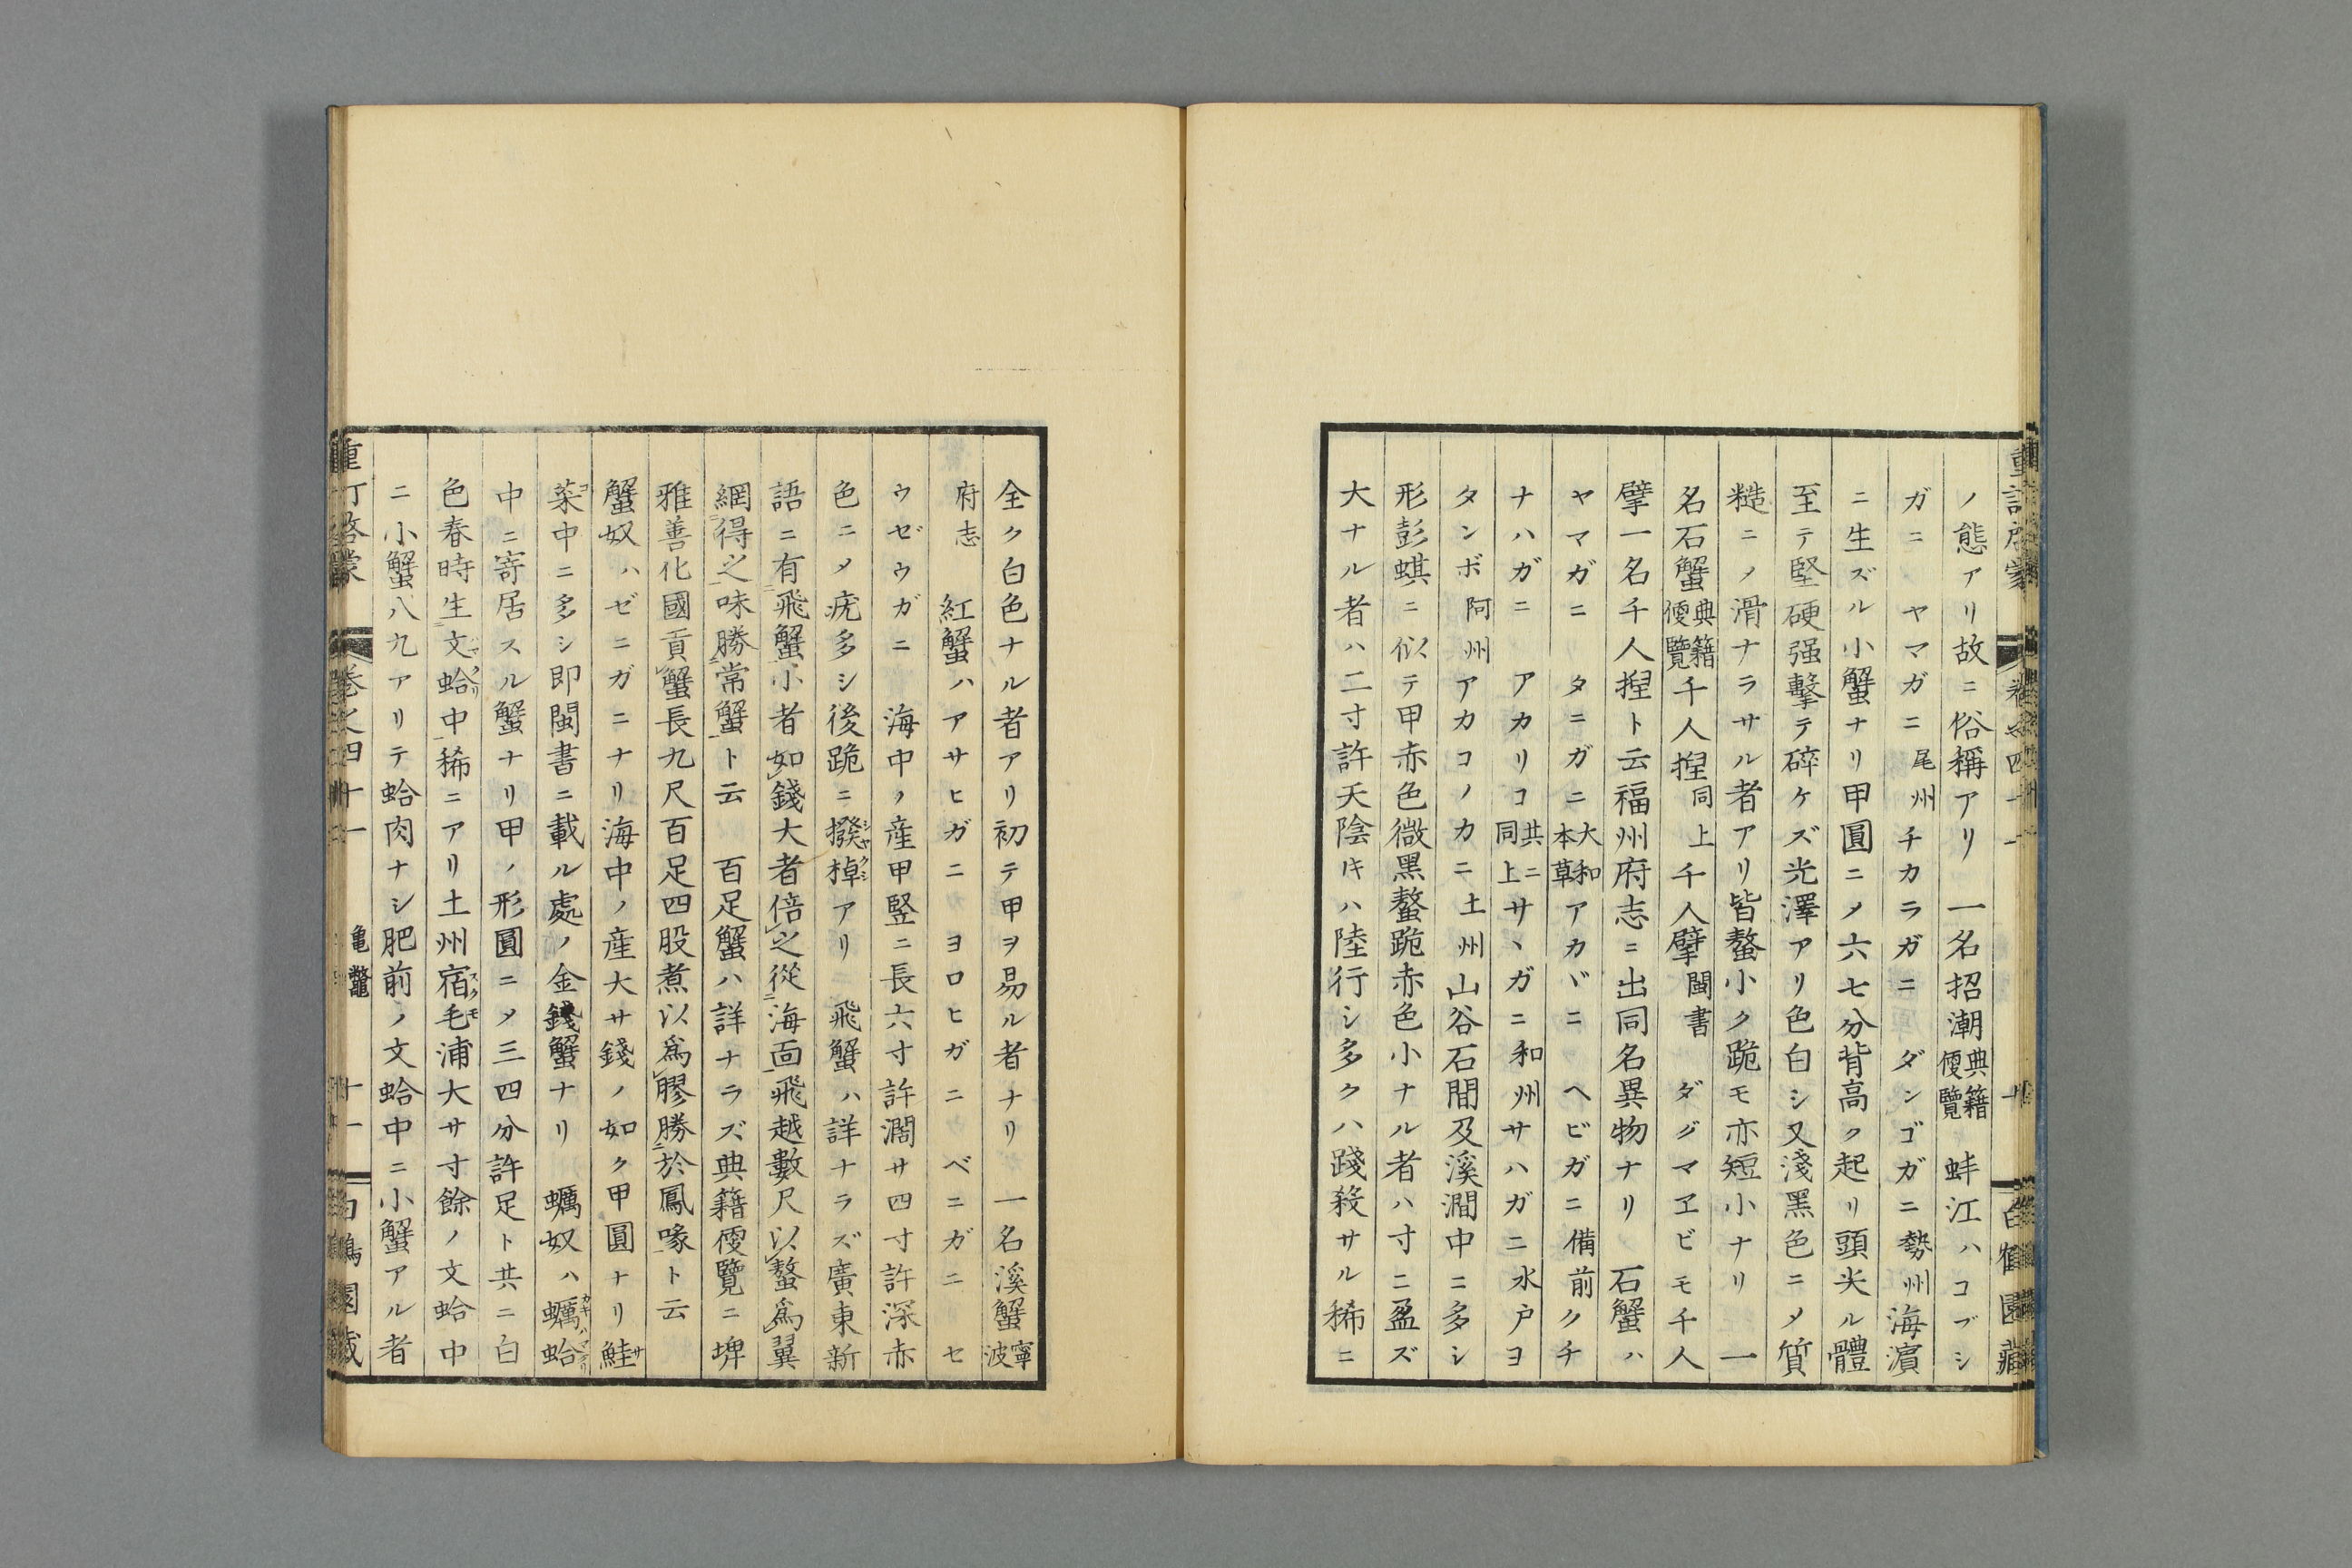 ノ態アリ故ニ俗稱アリ　一名招潮典籍便覽　蚌江ハコブシ
ガニ　ヤマガニ尾州チカラガニ　ダンゴガニ勢州海濵
ニ生ズル小蟹ナリ甲圓ニメ六七分背高ク起リ頭尖ル體
至テ堅硬强擊テ碎ケズ光澤アリ色白シ又淺黑色ニメ質
糙ニノ滑ナラサル者アリ皆螯小ク跪モ亦短小ナリ　一
名石蟹典籍便覽千人揑同上千人擘閩書　ダグマヱビモ千人
擘一名千人揑ト云福州府志ニ出同名異物ナリ　石蟹ハ
ヤマガニ　タニガニ大和本草アカバニ　ヘビガニ備前クチ
ナハガニ　アカリコ共ニ同上サヽガニ和州サハガニ水戸ヨ
タンボ阿州アカコノカニ土州山谷石間及溪澗中ニ多シ
形彭蜞ニ似テ甲赤色微黑螯跪赤色小ナル者ハ寸ニ盈ズ
大ナル者ハ二寸許天陰キハ陸行シ多クハ踐殺サル稀ニ
全ク白色ナル者アリ初テ甲ヲ易ル者ナリ　一名溪蟹寧波
府志　紅蟹ハアサヒガニ　ヨロヒガニ　ベニガニ　セ
ウゼウガニ　海中ノ産甲竪ニ長六寸許濶サ四寸許深赤
色ニメ疣多シ後跪ニ撥棹シヤクシアリ　飛蟹ハ詳ナラズ廣東新
語ニ有飛蟹小者如錢大者倍之從海面飛越數尺以螯爲翼
網得之味勝常蟹ト云　百足蟹ハ詳ナラズ典籍便覽ニ埤
雅善化國貢蟹長九尺百足四股煮以爲膠勝於鳳喙ト云
蟹奴ハゼニガニナリ海中ノ産大サ錢ノ如ク甲圓ナリ鮭サ
菜コ中ニ多シ即閩書ニ載ル處ノ金錢蟹ナリ　蠣奴ハ蠣蛤カキハマクリ
中ニ寄居スル蟹ナリ甲ノ形圓ニメ三四分許足ト共ニ白
色春時生文蛤ハマクリ中稀ニアリ土州宿毛スクモ浦大サ寸餘ノ文蛤中
ニ小蟹八九アリテ蛤肉ナシ肥前ノ文蛤中ニ小蟹アル者
重訂啓蒙　卷之四十一　亀鼈　十一